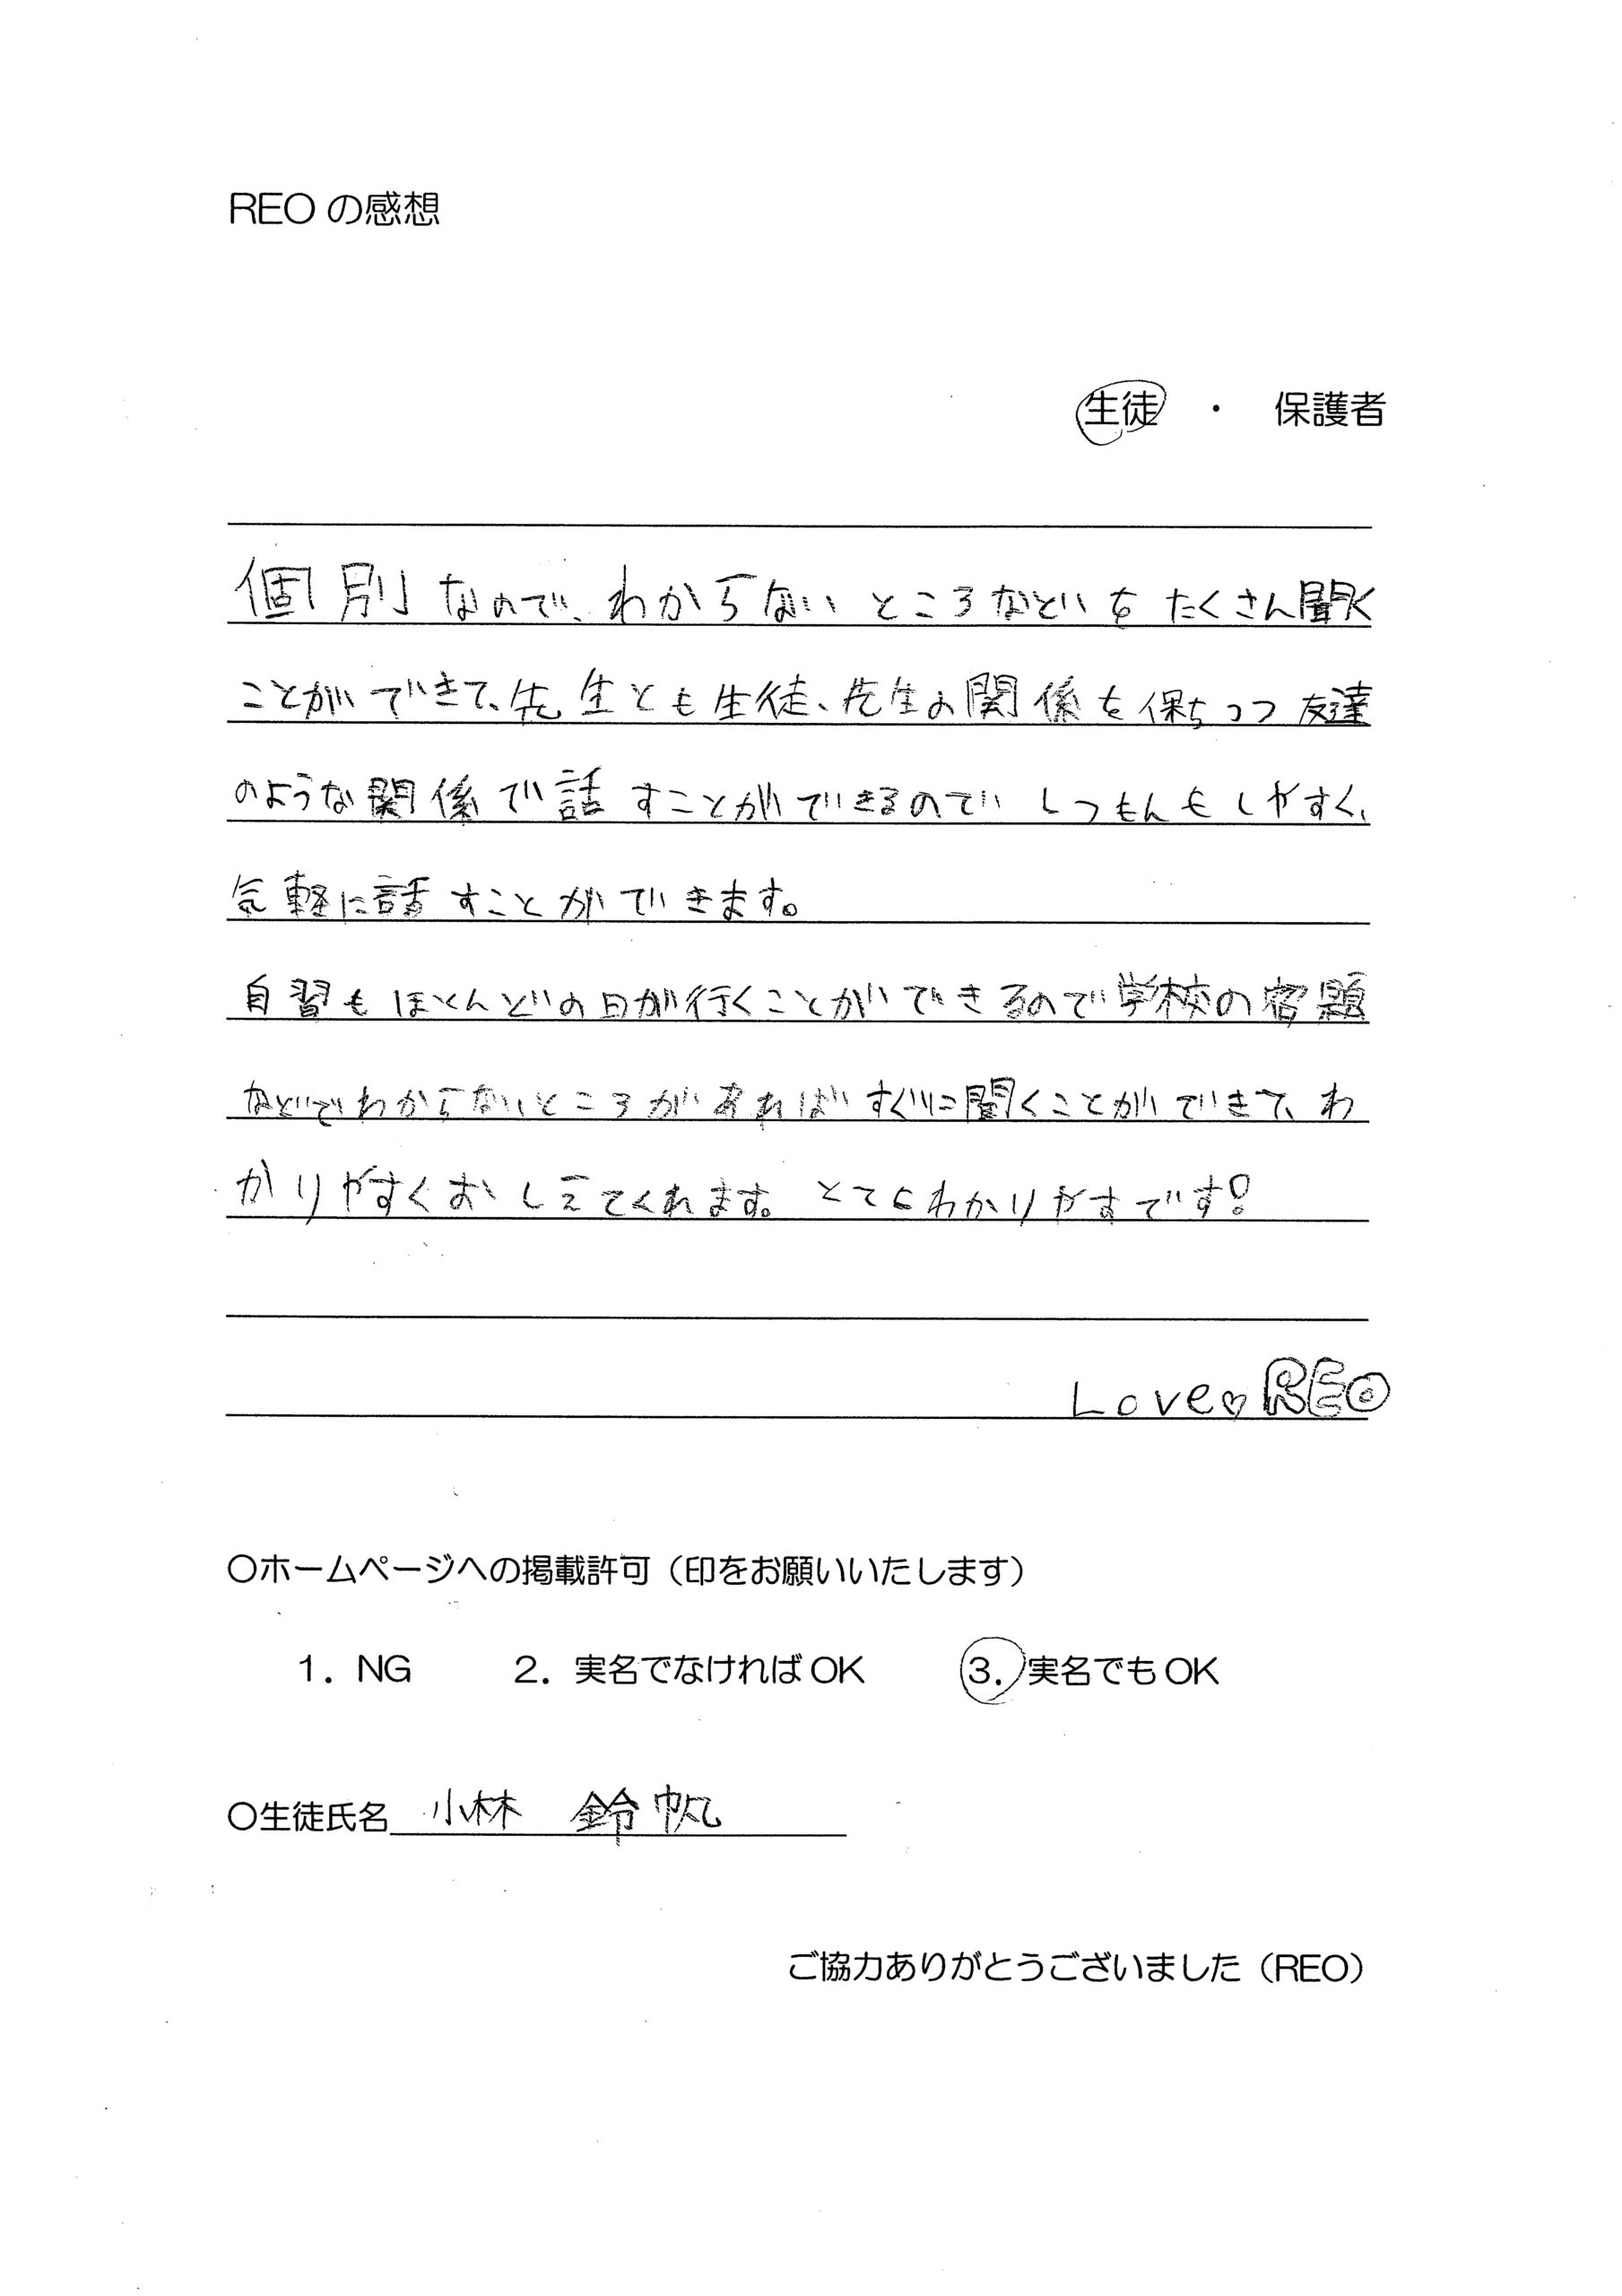 REOの感想
生徒 ・ 保護者
個別なので、わからないところなどをたくさん聞く
ことができて、先生とも生徒、先生の関係を保ちつつ友達
のような関係で話すことができるのでしつもんもしやすく、
気軽に話すことができます。
自習もほとんどの日が行くことができるので学校の宿題
などでわからないところがあればすぐに聞くことができて、わ
かりやすくおしえてくれます。とてもわかりやすです!
Love♡REO
〇ホームページへの掲載許可（印をお願いいたします）
1. NG 2. 実名でなければOK 3. 実名でもOK
〇生徒氏名 小林 鈴帆
ご協力ありがとうございました（REO）